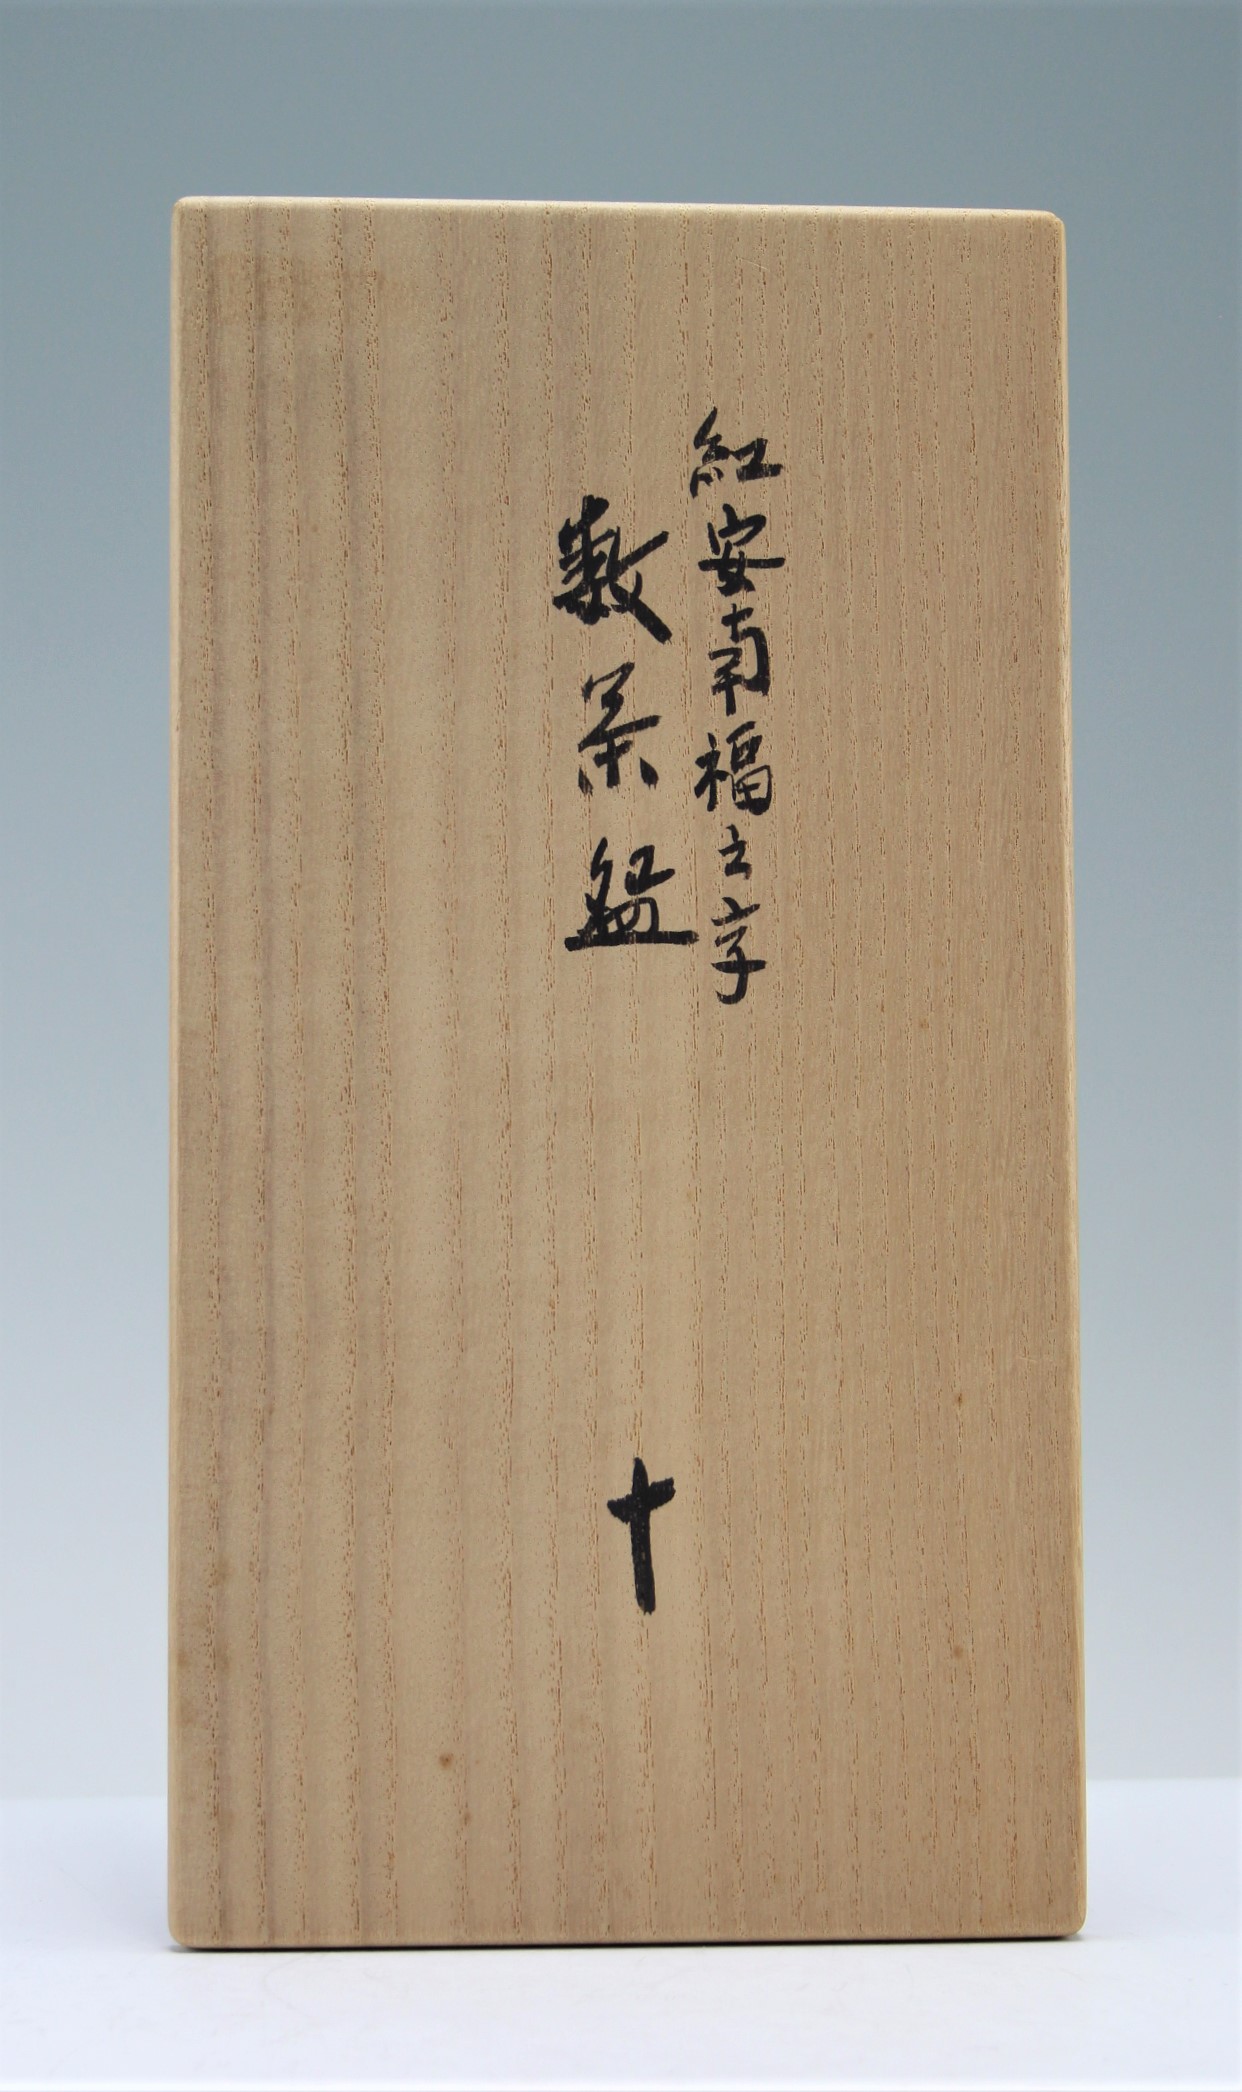 紅安南福之字
数茶盌
十